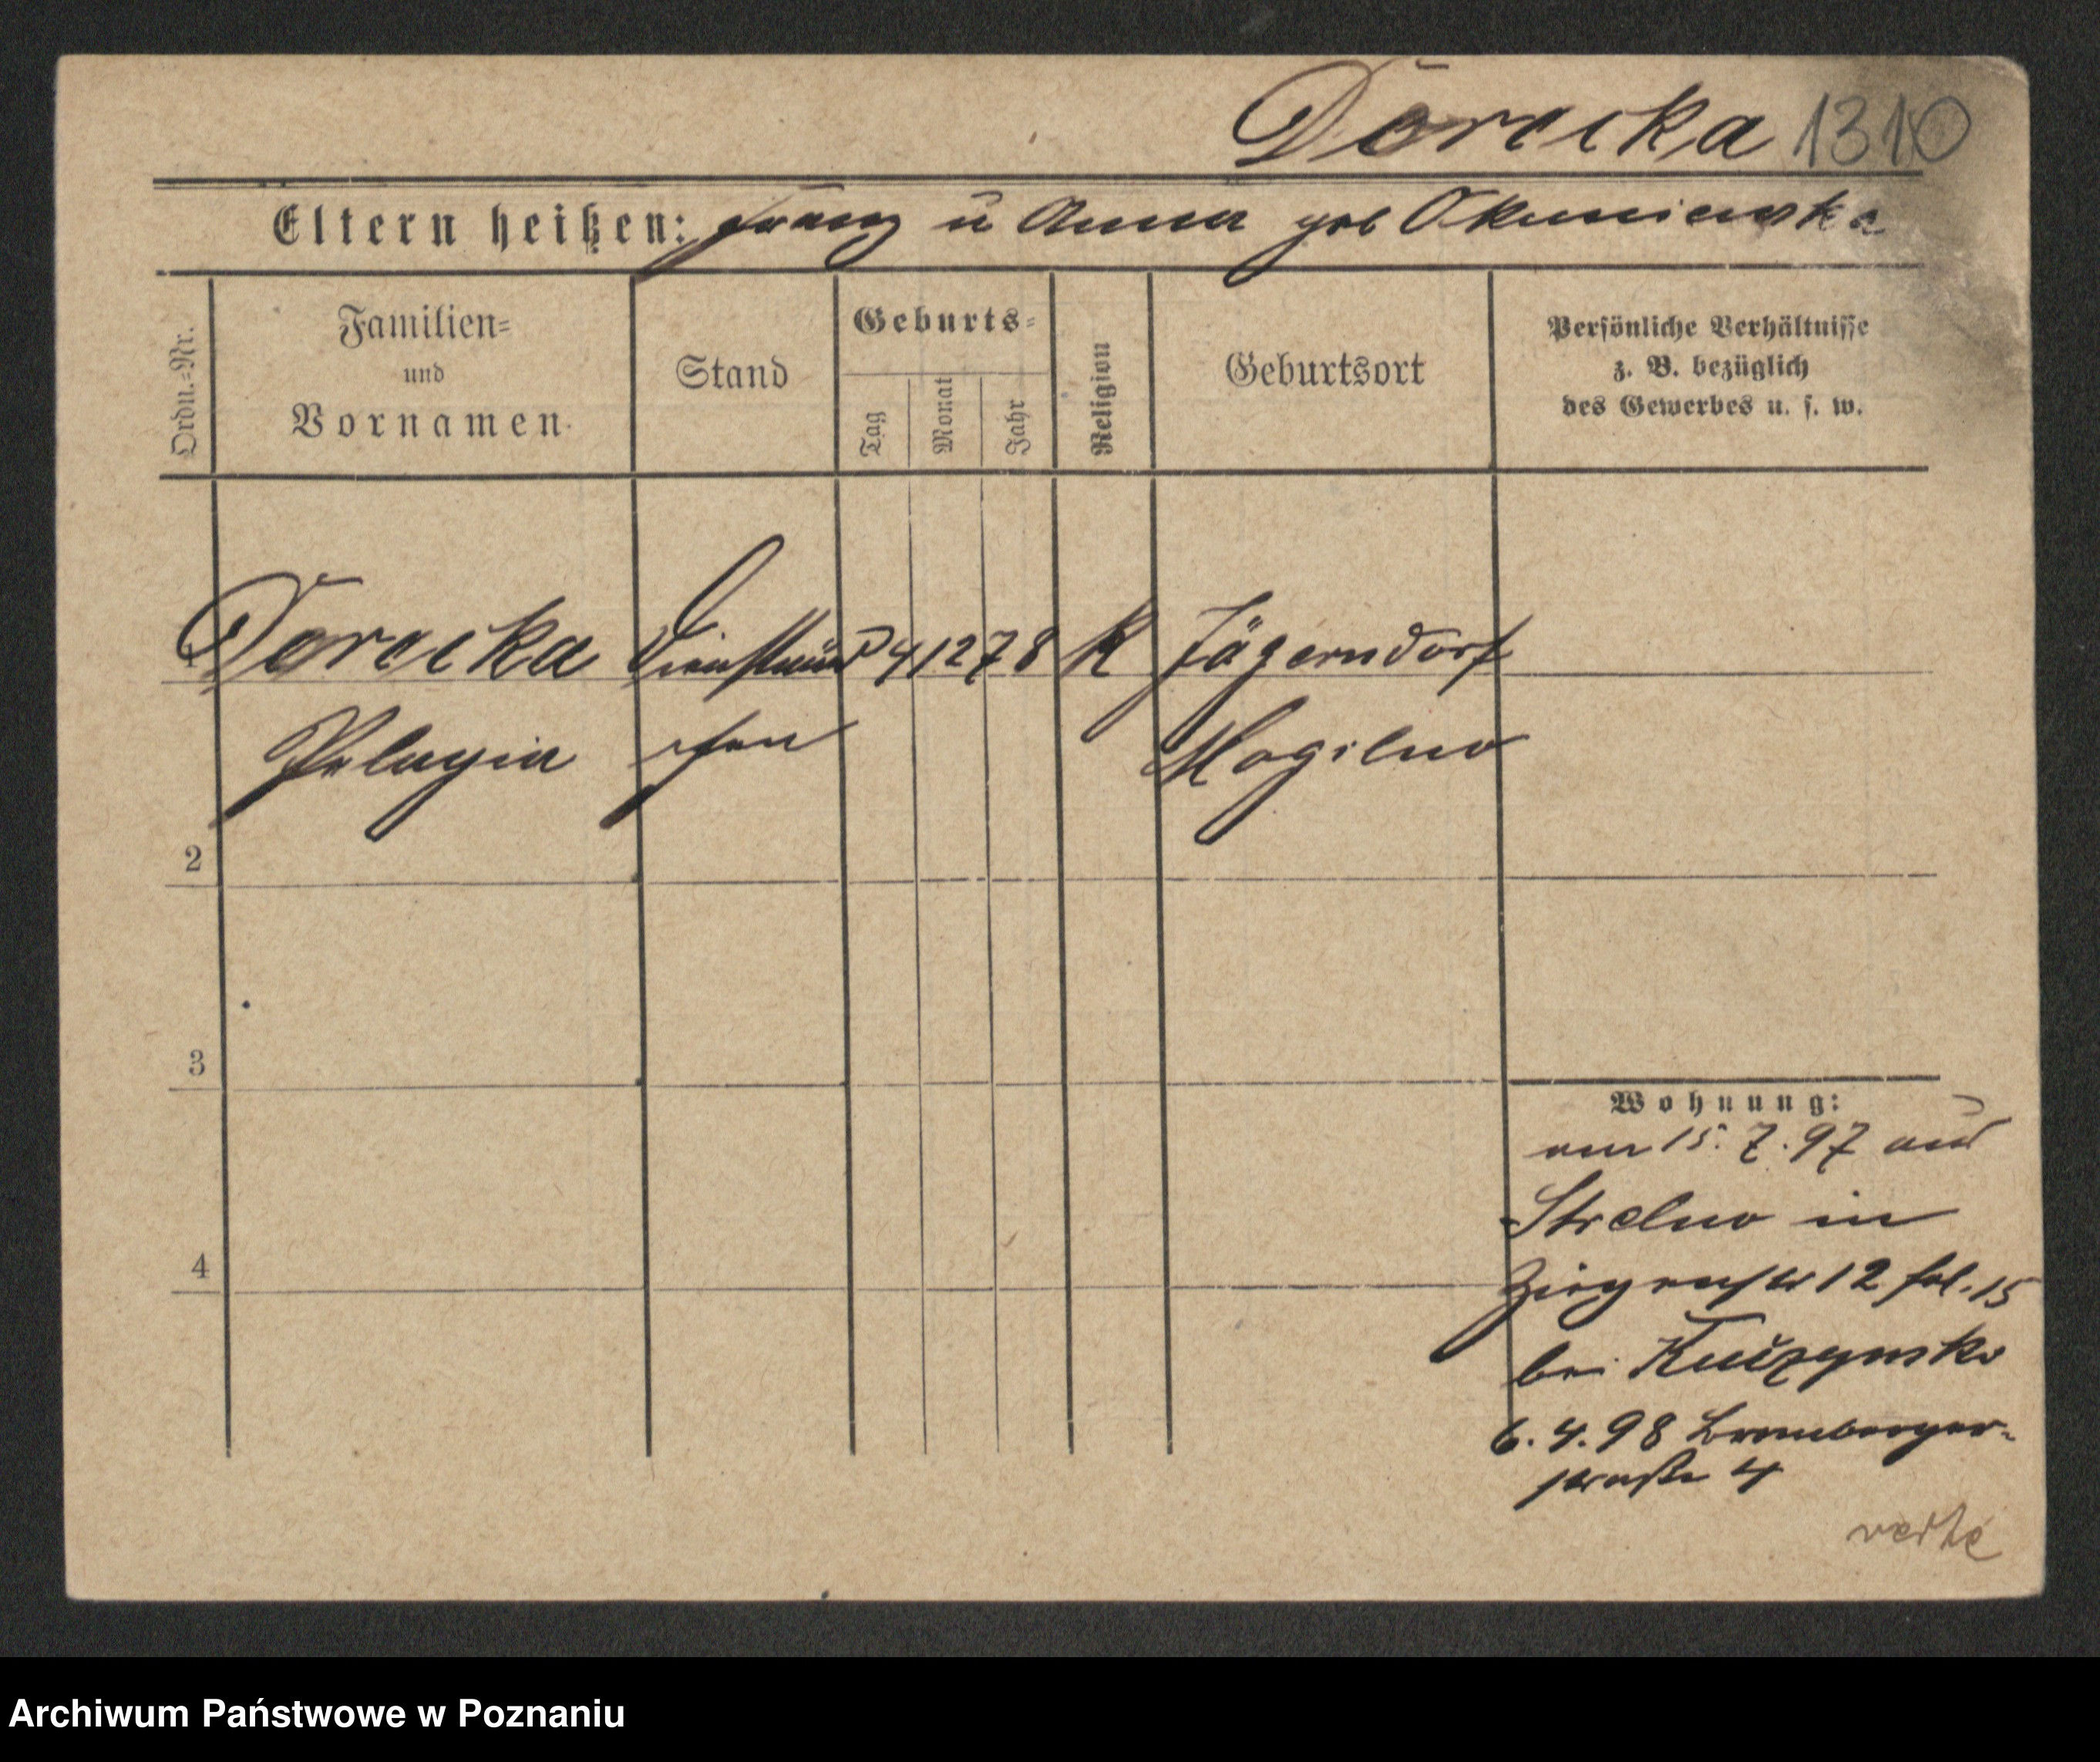 Dorecka 1310
Eltern heißen: Franz u Anna geb Okuniewska
Ordn.-Nr.
Familien-
und
Vornamen.
Stand
Geburts-
Tag
Monat
Jahr
Religion
Geburtsort
Persönliche Verhältnisse
z. B. bezüglich
des Gewerbes u. s. w.
1 Dorecka Dienstmäd 4 12 78 K Jägerndorf
Pelagia chen Mogilno
2
3
4
Wohnung:
am 15. 7. 97 aus
Strelno in
12 fol. 15
bei
6. 4. 98 Bromberger-
straße 4
verte
Archiwum Państwowe w Poznaniu